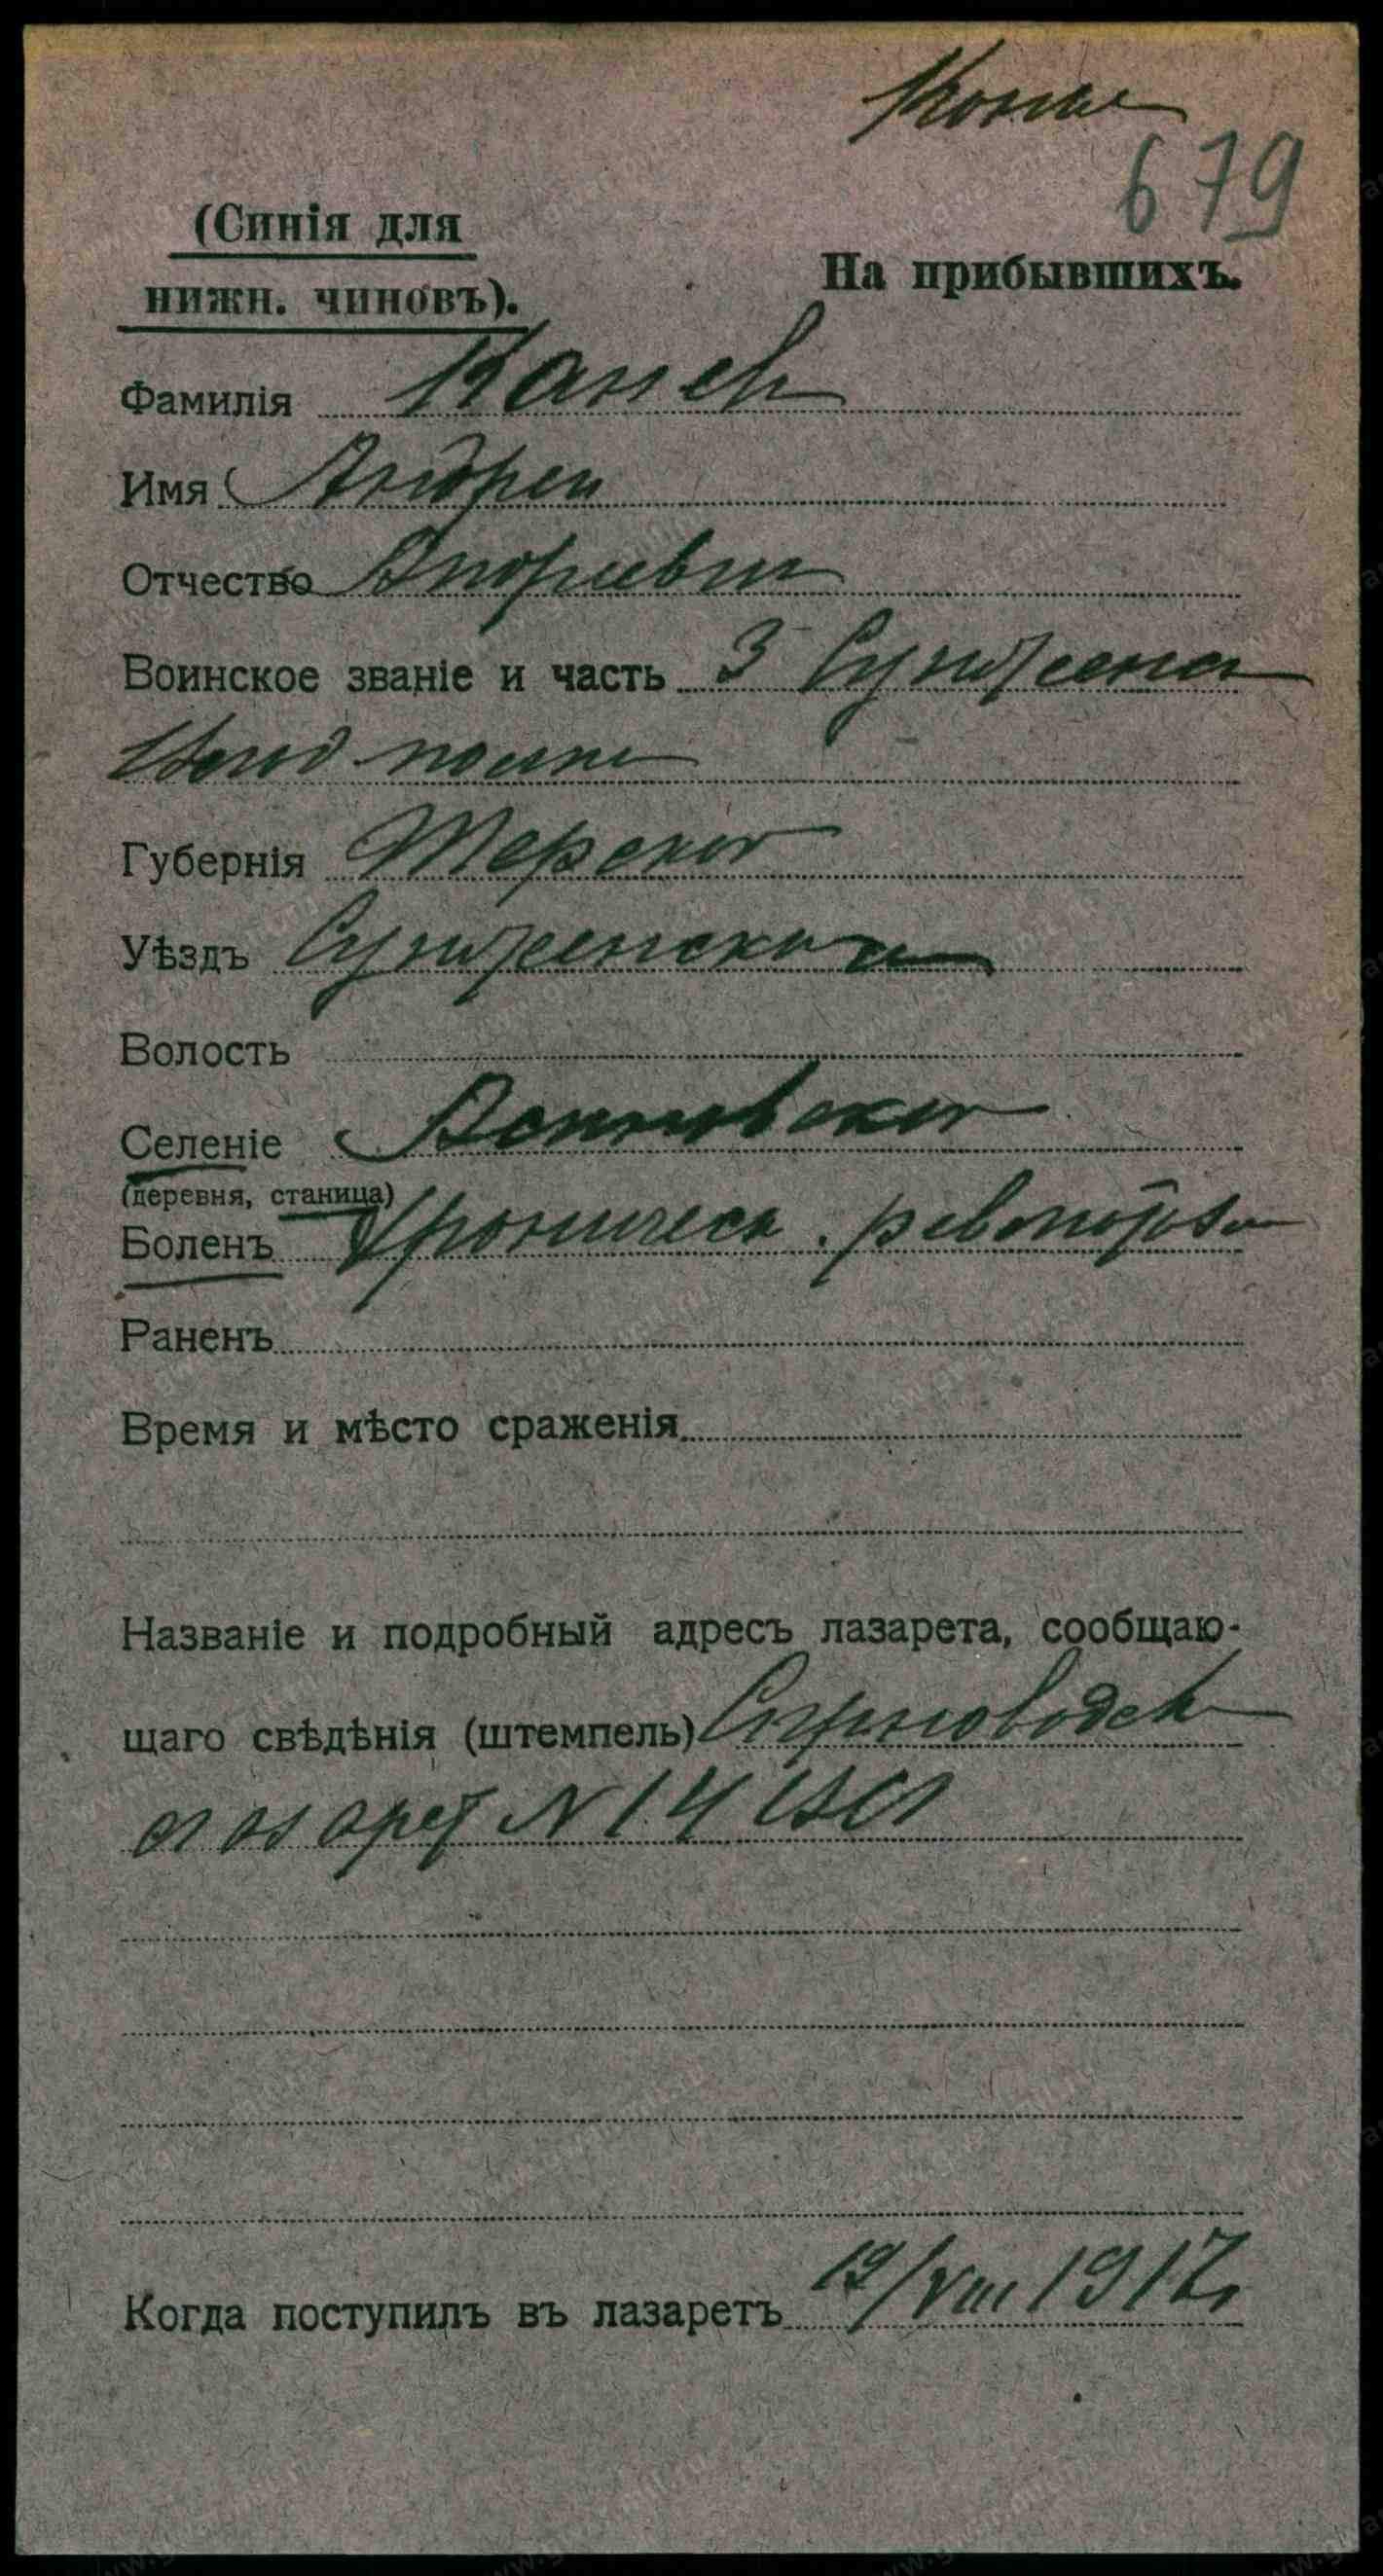 Копия
679
(Синія для
нижн. чиновъ).
На прибывшихъ.
Фамилія Канев
Имя Андреи
Отчество Андреевич
Воинское званіе и часть 3 Сунжена
полка
Губернія Терской
Уѣздъ Сунженской
Волость
Селеніе
(деревня, станица)
Боленъ Хроническ. ревматизм
Раненъ
Время и мѣсто сраженія
Названіе и подробный адресъ лазарета, сообщаю-
щаго свѣдѣнія (штемпель) Серноводск
лазарет N 14 ВСГ
Когда поступилъ въ лазаретъ 19/VIII 1917